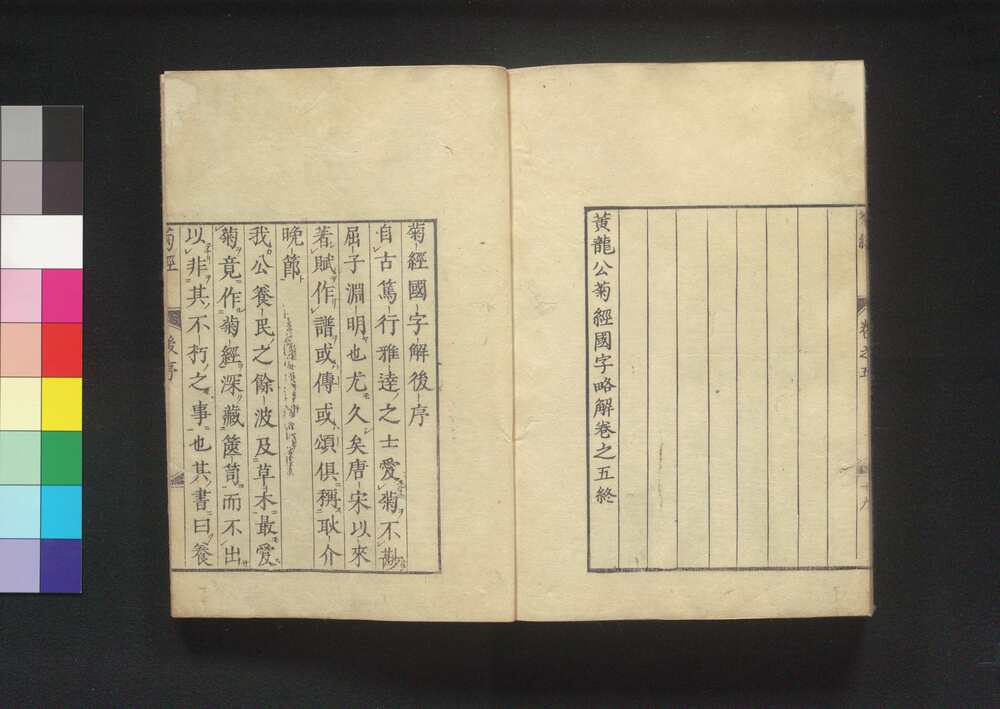 黃龍公菊經國字略解卷之五終
卷之五
菊經國字解後序
自古篤行雅達之士愛菊不尠
屈子淵明也尤久矣唐宋以來
著賦作譜或傳或頌俱稱耿介
晚節
我公養民之餘波及草木最愛
菊竟作菊經深藏篋笥而不出
以非其不朽之事也其書曰養
菊經
後序